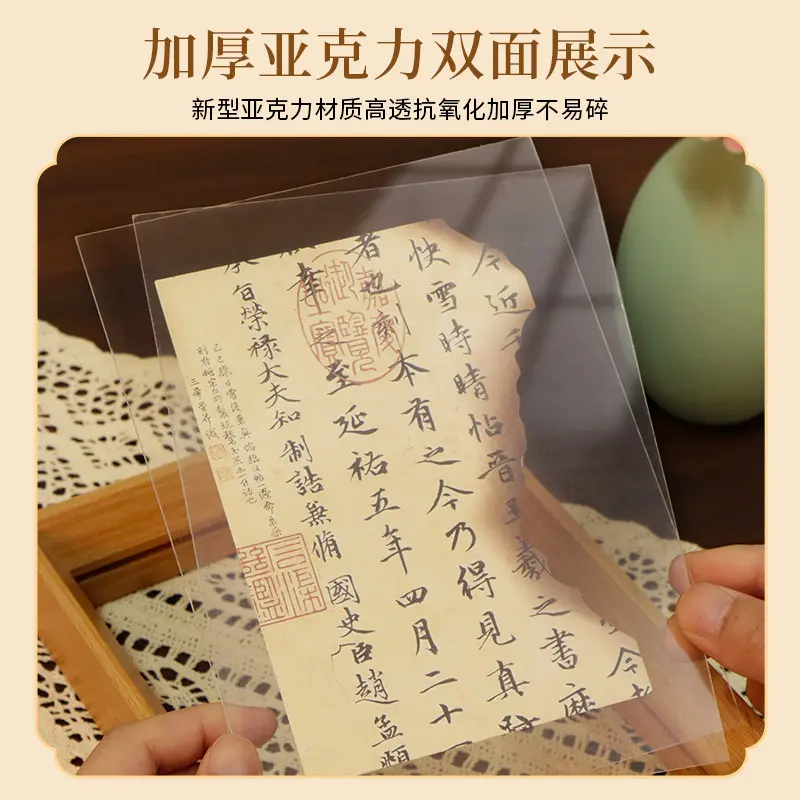 加厚亚克力双面展示
新型亚克力材质高透抗氧化加厚不易碎
今近千
今
快雪時晴帖晉王羲之書歷
者也刻本有之今乃得見真
幸之至延祐五年四月二十一
旨榮祿大夫知制誥兼脩國史臣趙孟頫